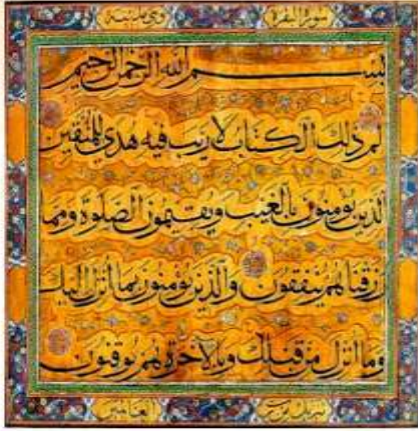 سورة البقرة وهي مدنية
بسم الله الرحمن الرحيم
الم ذلك الكتاب لا ريب فيه هدى للمتقين
الذين يؤمنون بالغيب ويقيمون الصلوة ومما
رزقناهم ينفقون والذين يؤمنون بما أنزل إليك
وما أنزل من قبلك وبالآخرة هم يوقنون
العالمين